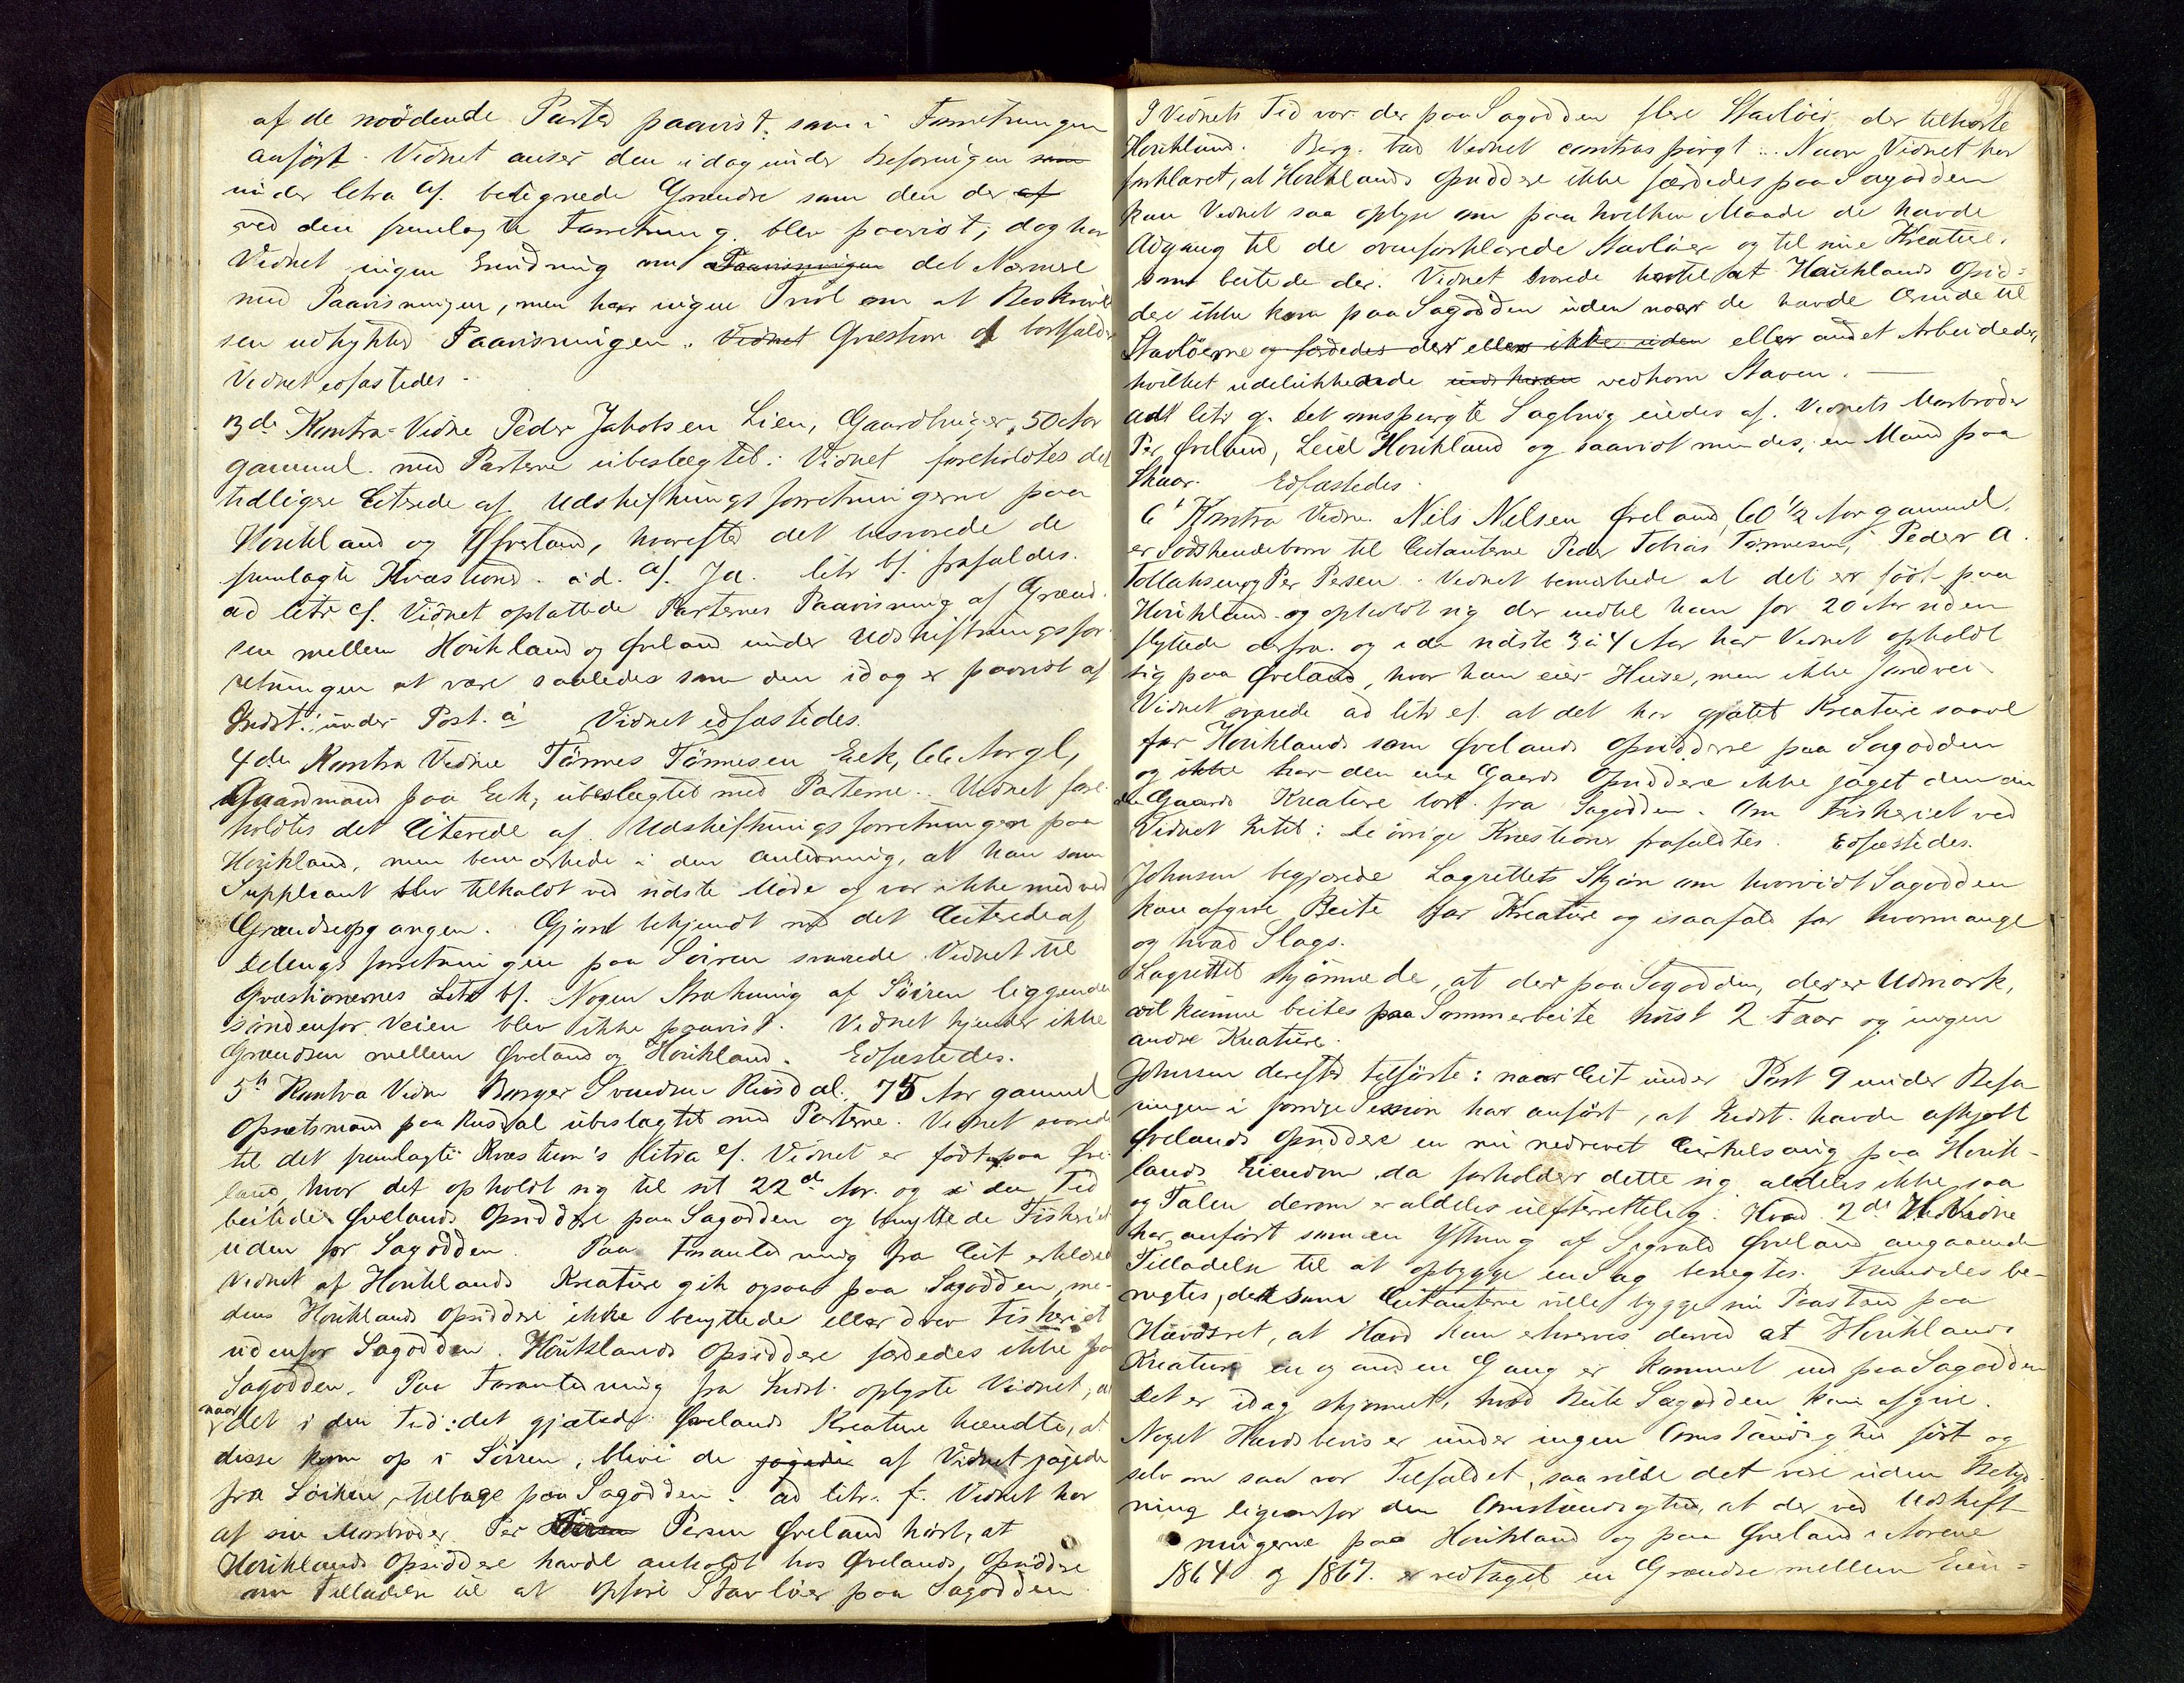 af de mödende Parter paavist, som i Forretningen
anført. Vidnet anser den idag under Befaringen som
under litra a/. betegnede Grændse som den der af
ved den fremlagte Forretning blev paavist; dog har
Vidnet ingen Erindring om Paavisningen det Nærmere
med Paavisningen, men har ingen Tvivl om at Beskrivel
sen udtrykker Paavisningen. Vidnet Qvæstion d bortfalder
Vidnet edfæstedes.
3de Kontra-Vidne Peder Jakobsen Lien, Gaardbruger, 50 Aar
gammel. med Parterne ubeslægtet: Vidnet foreholdtes det
tidligere Citerede af Udskiftningsforretningerne paa
Houkland og Øveland, hvorefter det besvarede de
fremlagte Kvæstioner. ad. a/. Ja. litr b/. frafaldes.
ad litr c/. Vidnet opfattede Parternes Paavisning af Grænd-
sen mellem Houkland og Øveland under Udskiftningsfor-
retningen at være saaledes som den idag er paavist af
Indst. under Post. a Vidnet edfæstedes.
4de Kontra Vidne Tönnes Tönnesen Eek, 66 Aar gl,
Gaardmand paa Eek, ubeslægtet med Parterne. Vidnet fore-
holdtes det Citerede af Udskiftningsforretningen paa
Houkland, men bemærkede i den Anledning, at han som
Suppleant blev tilkaldt ved sidste Møde og var ikke med ved
Grændseopgangen. Gjort bekjendt med det Citerede af
Delingsforretningen paa Søiren svarede Vidnet til
Qvæstionernes Litr b/. Nogen Strækning af Søiren liggende
søndenfor Veien blev ikke paavist. Vidnet kjender ikke
Grændsen mellem Øveland og Houkland. Edfæstedes.
5te Kontra Vidne Borger Svendsen Rusdal, 75 Aar gammel
Opsætsmand paa Rusdal ubeslægtet med Parterne. Vidnet svarede
til det fremlagte Kvæstion's litra e/. Vidnet er født paa Øve-
land, hvor det opholdt sig til sit 22de Aar. og i den Tid
beitede Øvelands Opsiddere paa Sagodden og benyttede Fiskeriet
uden for Sagodden. Paa Foranledning fra Cit erklærede
Vidnet at Houklands Kreature gik ogsaa paa Sagodden, me-
dens Houklands Opsiddere ikke benyttede eller drev Fiskeriet
udenfor Sagodden. Houklands Opsiddere færdedes ikke paa
Sagodden. Paa Foranledning fra Indst. oplyste Vidnet, at
naar det i den Tid: det gjætede Øvelands Kreature hændte, at
disse kom op i Søiren, blevi de jagede af Vidnet jagede
fra Søiren, tilbage paa Sagodden. ad litr. f. Vidnet har
af sin Morbroder Per Persen Øveland hørt, at
Houklands Opsiddere havde anholdt hos Øvelands Opsiddere
om Tilladelse til at opføre Stavløer paa Sagodden
I Vidnets Tid var der paa Sagodden flere Stavløer, der tilhørte
Houkland. Berg. bad Vidnet contraspurgt: Naar Vidnet har
forklaret, at Houklands Opsiddere ikke færdedes paa Sagodden
kan Vidnet saa oplyse om paa hvilken Maade de havde
Adgang til de ovenforklarede Stavløer og til sine Kreature,
som beitede der. Vidnet svarede hertil at Houklands Opsid-
dere ikke kom paa Sagodden uden naar de havde Ærinde til
Stavløerne og færdedes der ellers ikke uden eller andet Arbeide der,
hvilket udelukkende vedkom Staven.
ad litr g. Det omspurgte Sagbrug eiedes af Vidnets Morbroder
Per Øveland, Leid Houkland og saavidt mindes, en Mand paa
Skaar. Edfæstedes.
6te Kontra Vidne. Nils Nilsen Øveland, 60 1/2 Aar gammel.
er Sødskendebarn til Citanterne Peder Tobias Tönnesen, Peder A.
Tollaksen og Per Persen. Vidnet bemærkede at det er født paa
Houkland og opholdt sig der indtil han for 20 Aar siden
flyttede derfra. og i de sidste 3 à 4 Aar har Vidnet opholdt
sig paa Øveland, hvor han eier Huse, men ikke Jordvei.
Vidnet svarede ad litr e/. at det har gjætet Kreature saavel
for Houklands som Øvelands Opsiddere paa Sagodden
og ikke har den ene Gaards Opsiddere ikke jaget den an
den Gaards Kreature bort fra Sagodden. Om Fiskeriet ved
Vidnet Intet: De øvrige Kvæstioner frafaldtes. Edfæstedes.
Johnsen begjærede Lagrettets Skjøn om hvorvidt Sagodden
kan afgive Beite for Kreature og isaafald for hvormange
og hvad Slags.
Lagrettet skjønnede, at der paa Sagodden, der er Udmark,
vil kunne beites paa Sommerbeite høist 2 Faar og ingen
andre Kreature.
Johnsen derefter tilførte: naar Cit under Post 9 under Befa
ringen i forrige Session har anført, at Indst. havde afkjøbt
Øvelands Opsiddere en nu nedrevet Cirkelsaug paa Houk-
lands Eiendom da forholder dette sig aldeles ikke saa
og Talen derom er aldeles uefterrettelig. Hvad 2de Vidne
har anført som en Yttring af Sigvald Øveland angaaende
Tilladelse til at opbygge en Sag benegtes. Fremdeles be-
negtes, dersom Citanterne ville bygge sin Paastand paa
Hævdsret, at Hævd kan erhverves derved at Houklands
Kreature en og anden Gang er kommet ud paa Sagodden
Det er idag skjønnet, hvad Beite Sagodden kan afgive.
Noget Hævdsbevis er under ingen Omstændighed ført og
selv om saa var Tilfældet, saa vilde det være uden Betyd-
ning ligeoverfor den Omstændighed, at der ved Udskift-
ningerne paa Houkland og paa Øveland i Aarene
1864 og 1867. er vedtaget en Grændse mellem Eien-